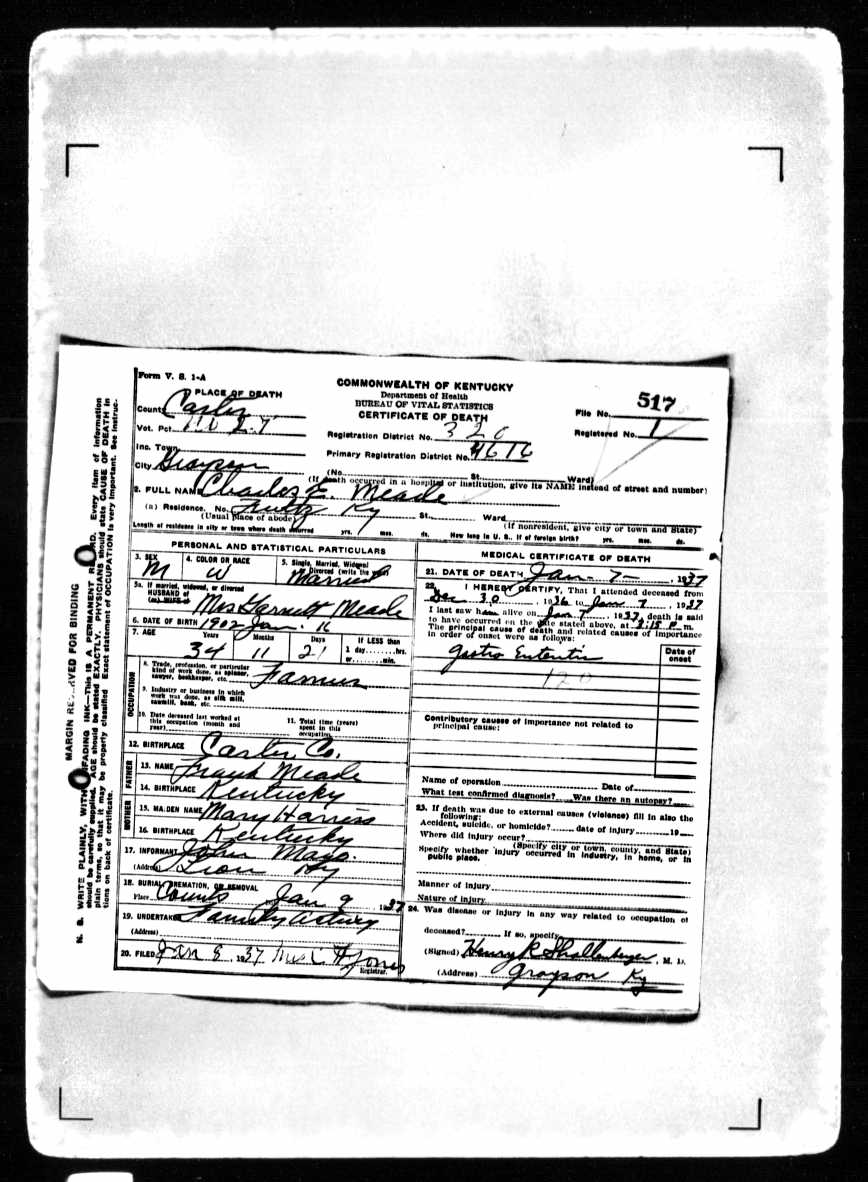 Form V. S. 1-A
COMMONWEALTH OF KENTUCKY
Department of Health
BUREAU OF VITAL STATISTICS
CERTIFICATE OF DEATH
File No. 517
Registered No. 1
PLACE OF DEATH
County Carter
Vot. Pct
Inc. Town
City Grayson
Registration District No. 320
Primary Registration District No. 4616
(No. St. Ward)
(If death occurred in a hospital or institution, give its NAME instead of street and number)
2. FULL NAME Charles E. Meade
(a) Residence. No. Ky St. Ward
(Usual place of abode) (If nonresident, give city or town and State)
Length of residence in city or town where death occurred yrs. mos. ds. How long in U. S. If of foreign birth? yrs. mos. ds.
PERSONAL AND STATISTICAL PARTICULARS
3. SEX M
4. COLOR OR RACE W
5. Single, Married, Widowed
Divorced (write the word) Married
5a. If married, widowed, or divorced
HUSBAND of
(or) WIFE of Mrs Garnett Meade
6. DATE OF BIRTH 1902 Jan. 16
7. AGE Years 34 Months 11 Days 21
If LESS than
1 day........hrs.
or........min.
OCCUPATION
8. Trade, profession, or particular
kind of work done, as spinner,
sawyer, bookkeeper, etc. Farmer
9. Industry or business in which
work was done, as silk mill,
sawmill, bank, etc.
10. Date deceased last worked at
this occupation (month and
year)
11. Total time (years)
spent in this
occupation
12. BIRTHPLACE Carter Co.
FATHER
13. NAME Frank Meade
14. BIRTHPLACE Kentucky
MOTHER
15. MAIDEN NAME Mary Harriss
16. BIRTHPLACE Kentucky
17. INFORMANT John Mayo.
(Address) Ky
18. BURIAL, CREMATION, OR REMOVAL
Place Counts Jan 9 1937
19. UNDERTAKER Family
(Address)
20. FILED Jan 8 1937 Jones
Registrar.
MEDICAL CERTIFICATE OF DEATH
21. DATE OF DEATH Jan - 7 - , 1937
22. I HEREBY CERTIFY, That I attended deceased from
Dec 30, 1936 to Jan 7, 1937
I last saw him alive on Jan 7, 1937 death is said
to have occurred on the date stated above, at 8:15 P. m.
The principal cause of death and related causes of importance
in order of onset were as follows:
Date of
onset
Gastro
120
Contributory causes of importance not related to
principal cause:
Name of operation Date of
What test confirmed diagnosis? Was there an autopsy?
23. If death was due to external causes (violence) fill in also the
following:
Accident, suicide, or homicide? date of injury 19
Where did injury occur?
(Specify city or town, county, and State)
Specify whether injury occurred in industry, in home, or in
public place.
Manner of injury
Nature of injury
24. Was disease or injury in any way related to occupation of
deceased? If so, specify
(Signed) Henry R Shallenberger, M. D.
(Address) Grayson Ky
MARGIN RESERVED FOR BINDING
N. B. WRITE PLAINLY, WITH UNFADING INK—This is A PERMANENT RECORD. Every item of information
should be carefully supplied. AGE should be stated EXACTLY. PHYSICIANS should state CAUSE OF DEATH in
plain terms, so that it may be properly classified. Exact statement of OCCUPATION is very important. See instruc-
tions on back of certificate.